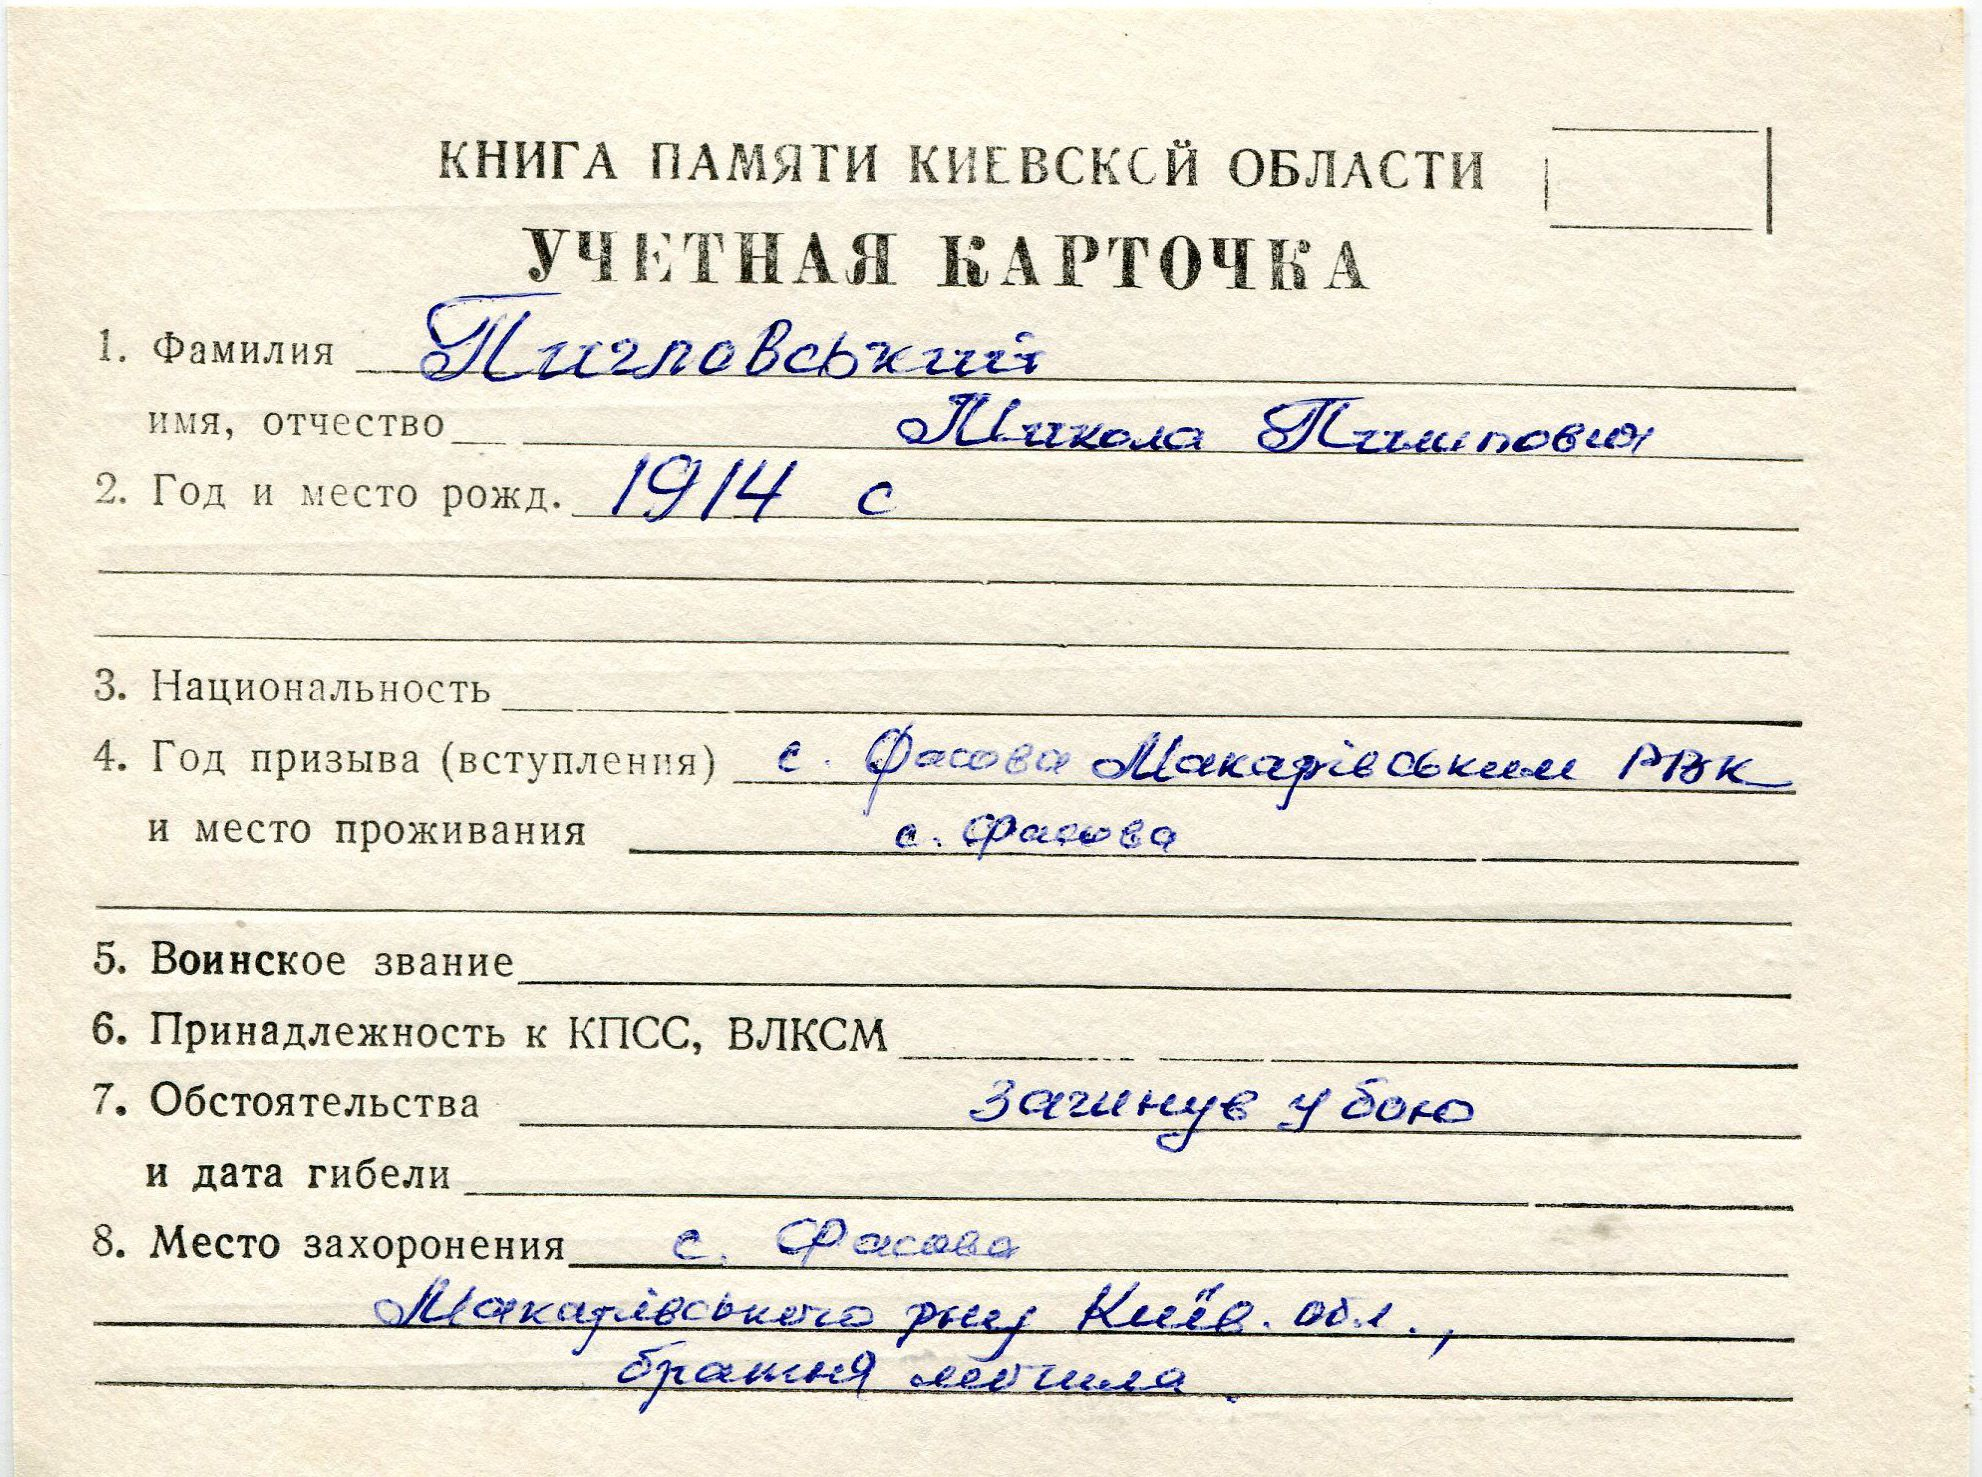 КНИГА ПАМЯТИ КИЕВСКОЙ ОБЛАСТИ
УЧЕТНАЯ КАРТОЧКА
1. Фамилия Пигловський
имя, отчество Микола Пилипович
2. Год и место рожд. 1914 с
3. Национальность
4. Год призыва (вступления) с. Фасова Макарівським РВК
и место проживания с. Фасова
5. Воинское звание
6. Принадлежность к КПСС, ВЛКСМ
7. Обстоятельства Загинув у бою
и дата гибели
8. Место захоронения с. Фасова
Макарівського р-ну Київ. обл.,
братня могила.